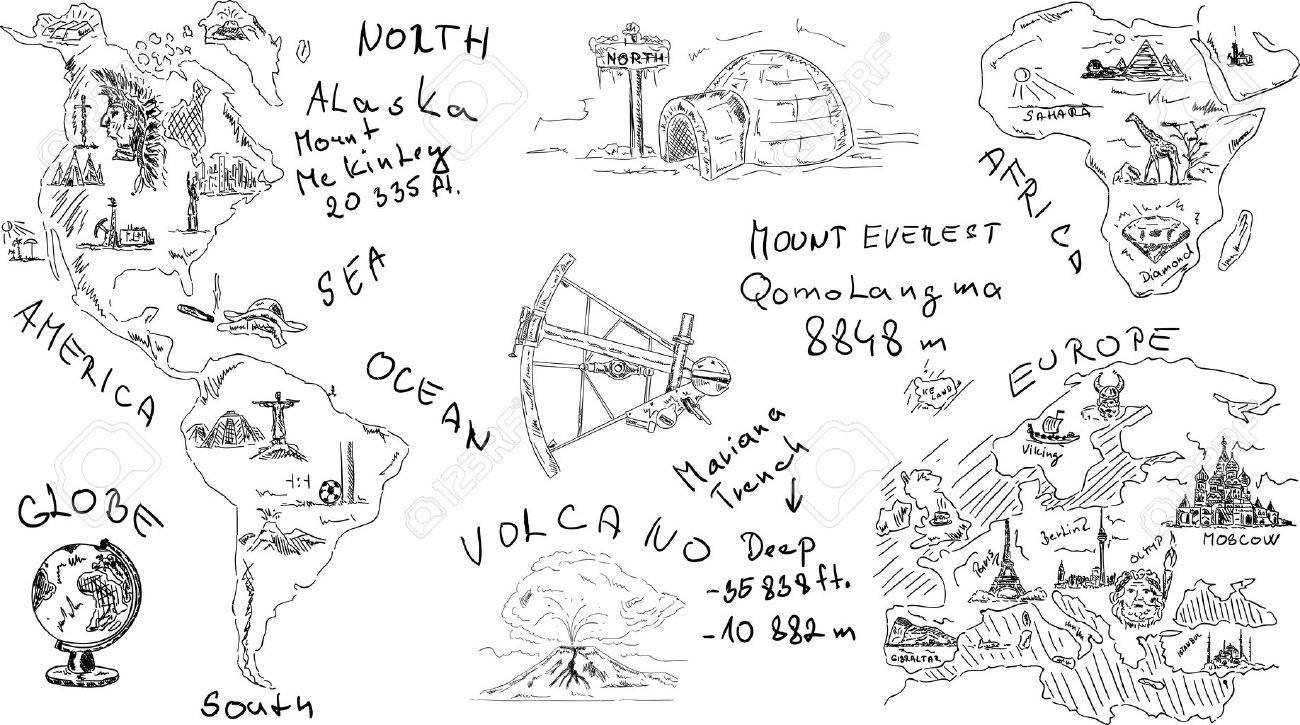 NORTH
ALaska
Mount
Mc Kinley
20 335 ft.
NORTH
SAHARA
AFRICA
Diamond
SEA
AMERICA
OCEAN
MOUNT EVEREST
QomoLangma
8848 m
EUROPE
ICE
LAND
Viking
Mariana
Trench
GLOBE
1:1
VOLCANO
Deep
-35 838 ft.
-10 882 m
Paris
Berlin
OLIMP
MOSCOW
GIBRALTAR
ISTANBUL
South
123RF